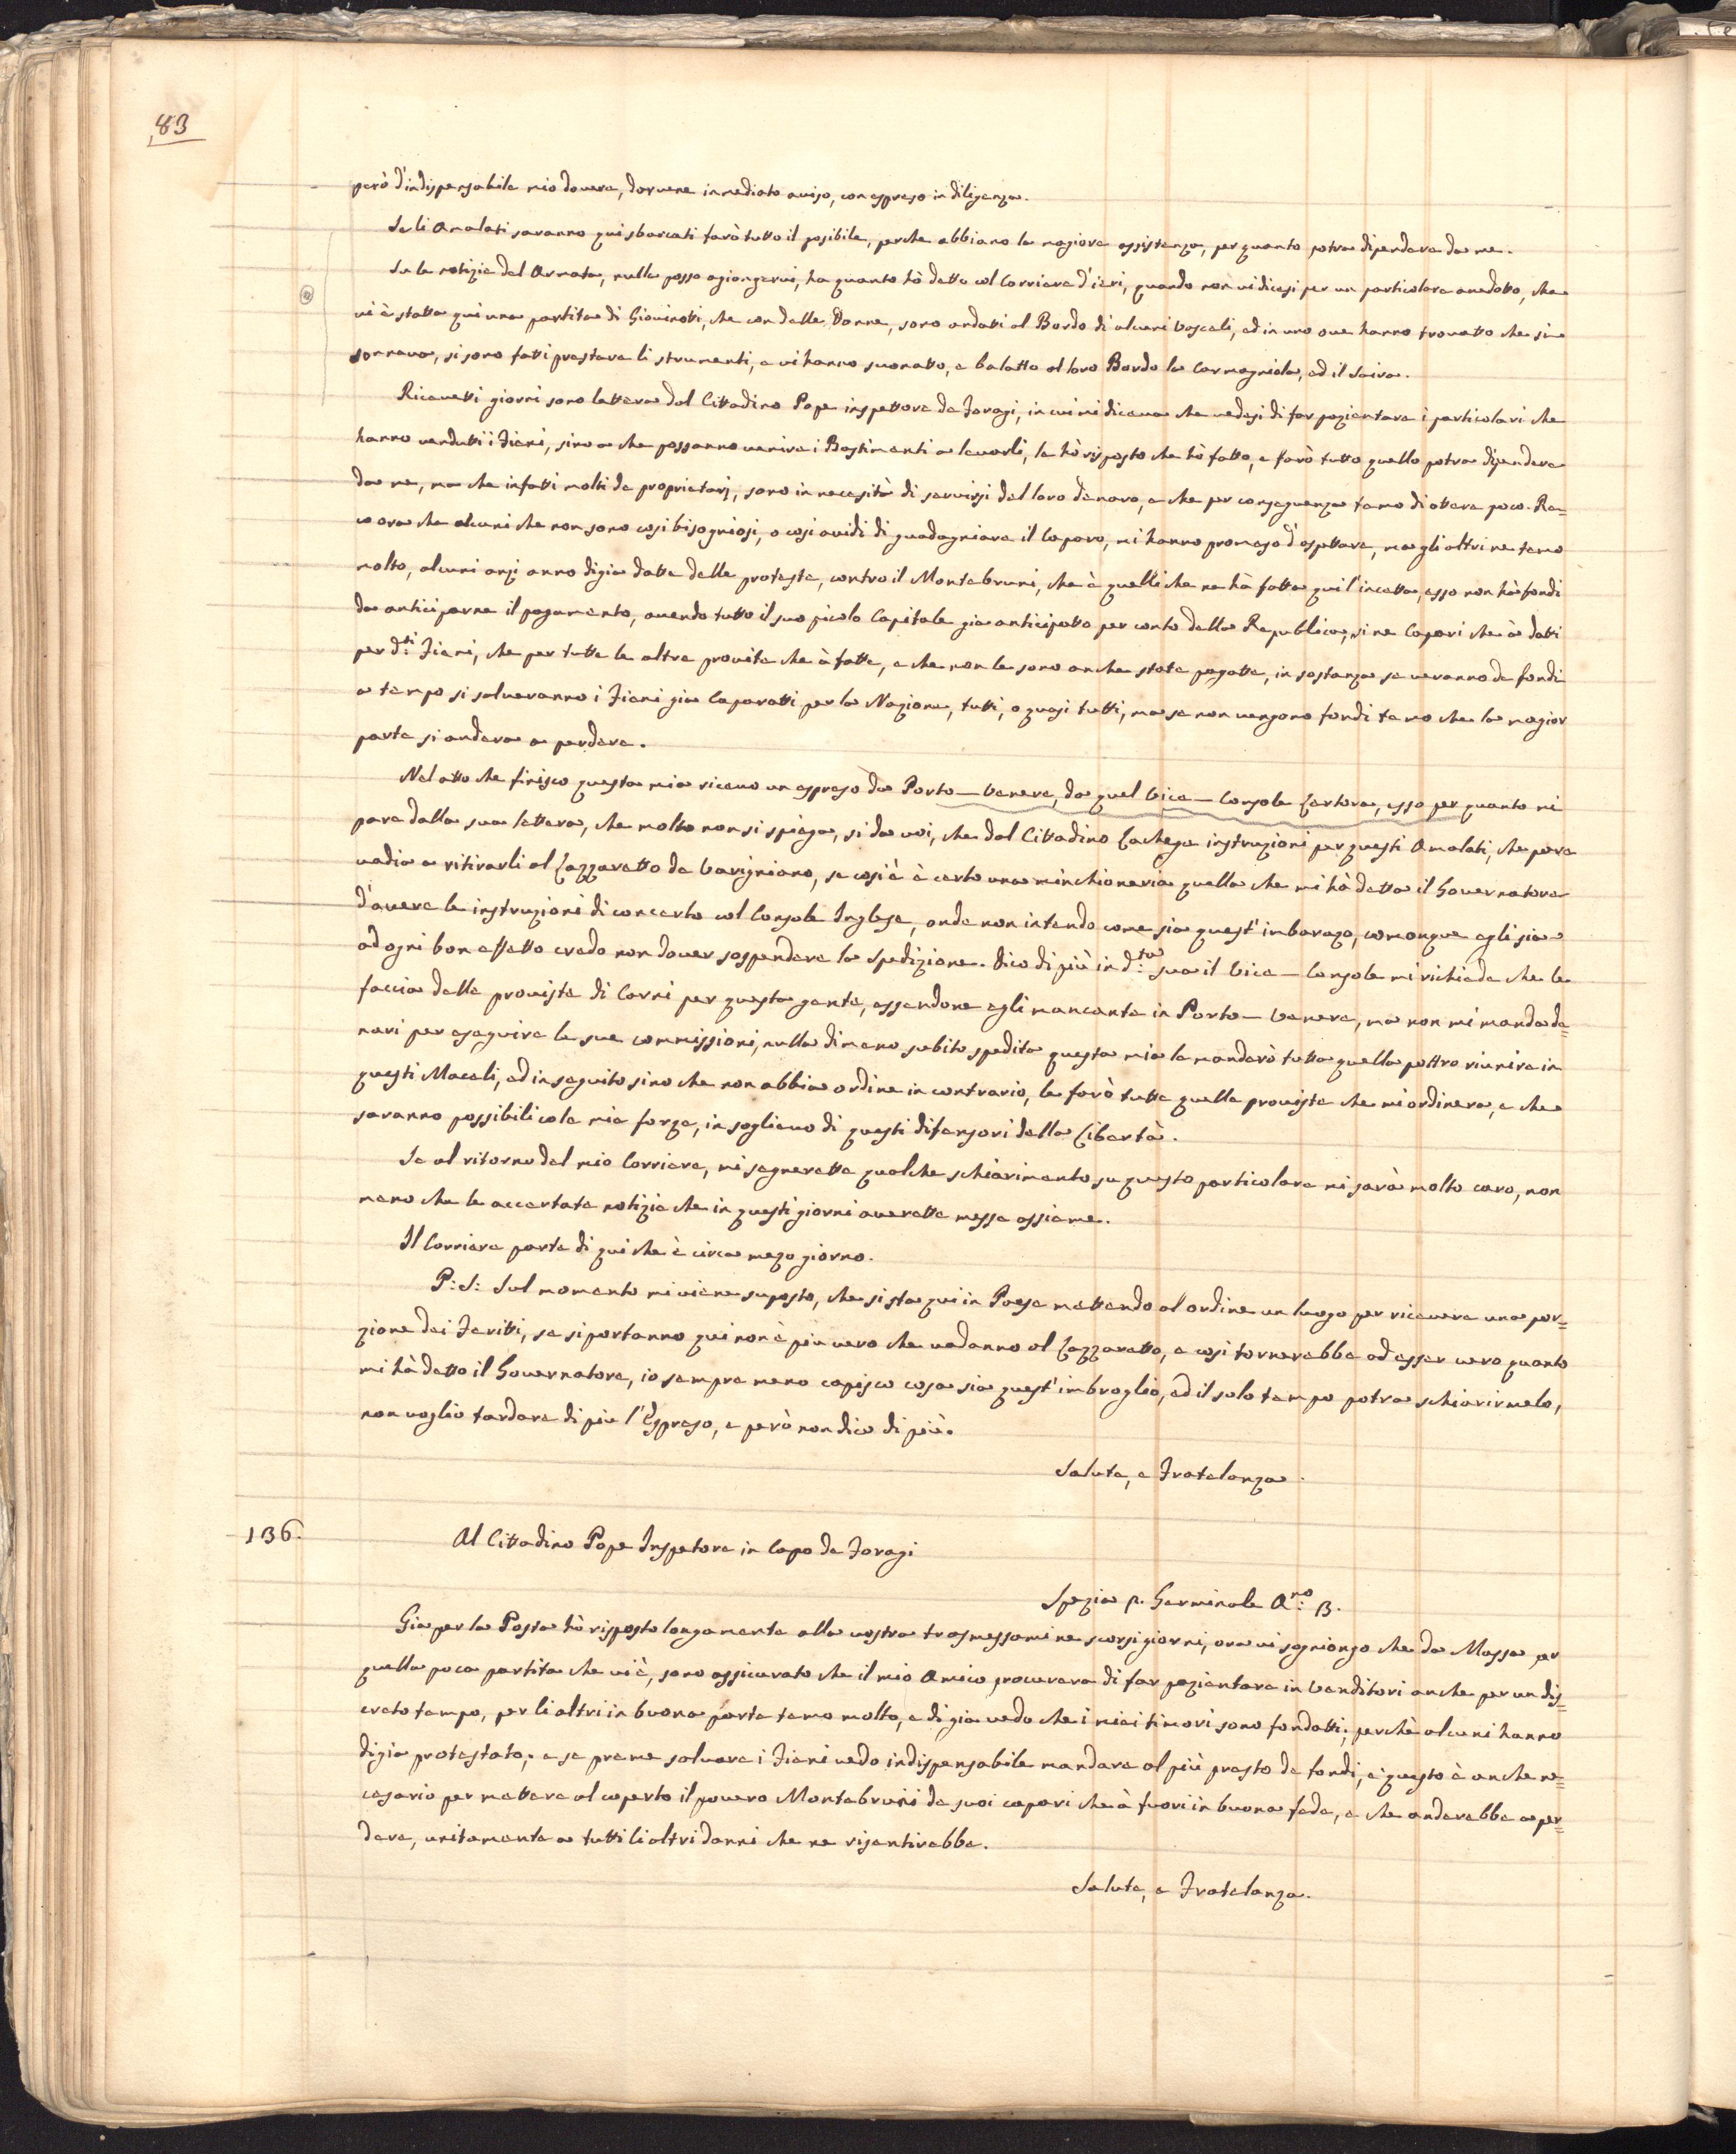 83
però d'indispensabile mio dovere, darvene inmediato aviso, con espreso in diligenza.
Se li Amalati saranno qui sbarcati farò tutto il posibile, perche abbiano la magiore assistenza, per quanto potra dipendere da me.
Su le notizie del Armata, nulla posso agiongervi, ha quanto hò detto col Corriere d'ieri, quando non vi dicesi per un particolare anedotto, che
vi è statta qui una partita di Giovinotti, che con delle Donne, sono andatti al Bordo di alcuni Vascelli, ed in uno ove hanno trovatto che si
sonnava, si sono fatti prestare li strumenti, e vi hanno suonatto, e balatto al loro Bordo la Carmagniola, ed il Saira.
Ricevetti giorni sono lettera dal Cittadino Pope inspettore de Foragi, in cui mi diceva che vedesi di far pazientare i particolari che
hanno vendutti i Fieni, sino a che possanno venire i Bastimenti a levarli, le hò risposto che hò fatto, e farò tutto quello potra dipendere
da me, ma che infatti molti de proprietarj, sono in necesità di servirsi del loro denaro, e che per conseguenza temo di ottere poco. Re-
co ora che alcuni che non sono cosi bisogniosi, o cosi avidi di guadagniare il Caparo, mi hanno promeso d'aspettare, ma gli altri ne temo
molto, alcuni anzi anno digia datte delle proteste, contro il Montebruni, che è quelli che ne hà fatta qui l'incetta, esso non hà fondi
da anticiparne il pagamento, avendo tutto il suo picolo Capitale gia anticipatto per conto della Republica, si ne Capari che à datti
per d.ti Fieni, che per tutte le altre provite che à fatte, e che non le sono anche state pagatte, in sostanza se veranno de fondi
a tempo si salveranno i Fieni gia Caparatti per la Nazione, tutti, o quasi tutti, ma se non vengono fondi temo che la magior
parte si andera a perdere.
Nel atto che finisco questa mia ricevo un espreso da Porto-Venere, da quel Vice-Console Certora, esso per quanto mi
pare dalla sua lettera, che molto non si spiega, si da voi, che dal Cittadino Lachese instruzioni per questi Amalati, che pare
vadia a ritirarli al Lazzaretto de Varigniano, se cosi è è certo una minchioneria quella che mi hà detta il Governatore
d'avere le instruzioni di concerto col Console Inglese, onde non intendo come sia quest'imbarazo, comonque egli sia
ad ogni bon effetto credo non dover sospendere la Spedizione. Dico di più in d.ta sua il Vice-Console mi richiede che le
faccia delle proviste di Carni per questa gente, essendone egli mancante in Porto-Venere, ma non mi manda de=
nari per eseguire le sue commissioni, nulla dimeno subito spedita questa mia le manderò tutta quella pottro riunire in
questi Maceli, ed in seguito sino che non abbia ordine in contrario, le farò tutte quelle proviste che mi ordinera, e che
saranno possibili cole mie forze, in soglievo di questi difensori della Libertà.
Se al ritorno del mio Corriere, mi segnerette qualche schiarimento su questo particolare mi sarà molto caro, non
meno che le accertate notizie che in questi giorni averette messe assieme.
Il Corriere parte di qui che è circa mezo giorno.
P:S: Sul momento mi viene suposto, che si sta qui in Paese mettendo al ordine un luogo per ricevere una por=
zione dei Feritti, se si portanno qui non è più vero che vadanno al Lazzaretto, e cosi tornerebbe ad esser vero quanto
mi hà detto il Governatore, io sempre meno capisco cosa sia quest'imbroglio, ed il solo tempo potra schiarirmelo,
non voglio tardare di più l'Espreso, e però non dico di più.
Salute, e Fratelanza.
136.
Al Cittadino Pope Inspetore in Capo de Foragi
Spezia p. Germinale A.no 3.
Gia per la Posta hò risposto longamente alla vostra trasmessami ne scorsi giorni, ora vi sogniongo che da Massa per
quella poca partita che vi è, sono assicurato che il mio Amico procurera di far pazientare in Venditori anche per un dis=
creto tempo, per li altri in buona parte temo molto, e di gia vedo che i miei timori sono fondatti; perchè alcuni hanno
digia protestato; e se preme salvare i Fieni vedo indispensabile mandare al più presto de fondi, e questo è anche ne=
cesario per mettere al coperto il povero Montebruni de suoi capari che à fuori in buona fede, e che anderebbe a per=
dere, unitamente a tutti li altri danni che ne risentirebbe.
Salute, e Fratelanza.